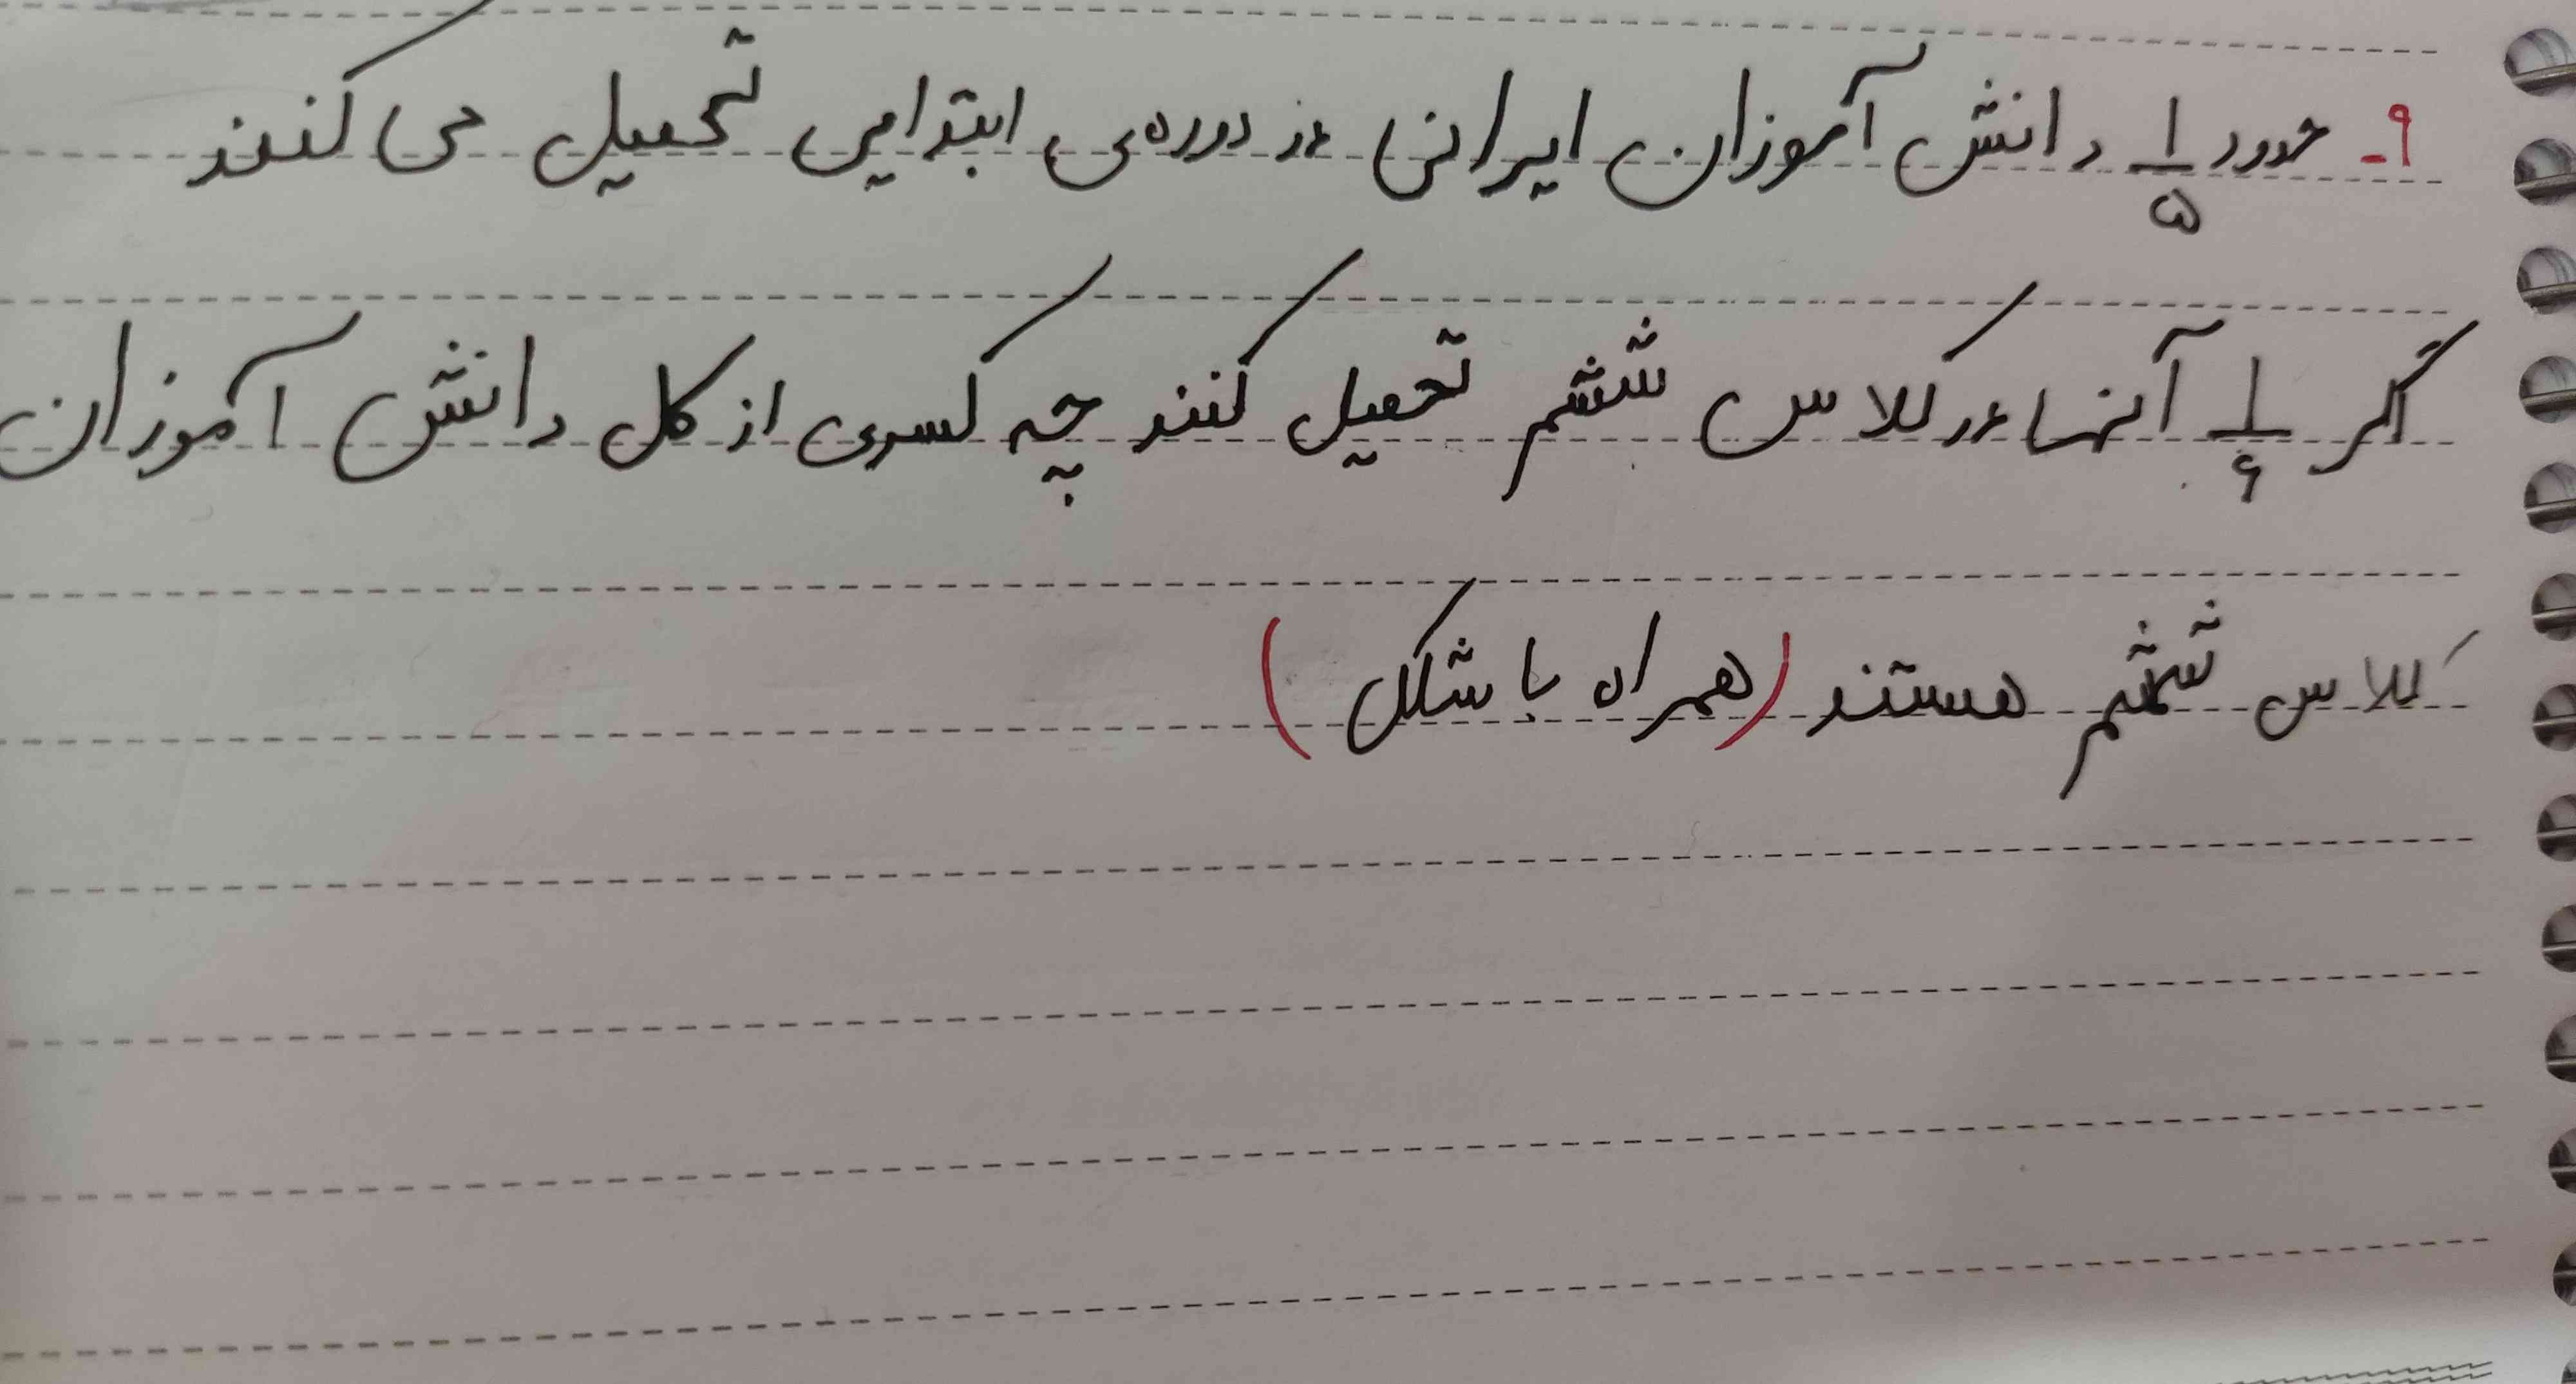 ۹- حدود ۱/۵ دانش آموزان ایرانی در دوره‌ی ابتدایی تحصیل می کنند
اگر ۱/۶ آنها در کلاس ششم تحصیل کنند چه کسری از کل دانش آموزان
کلاس ششم هستند (همراه با شکل)